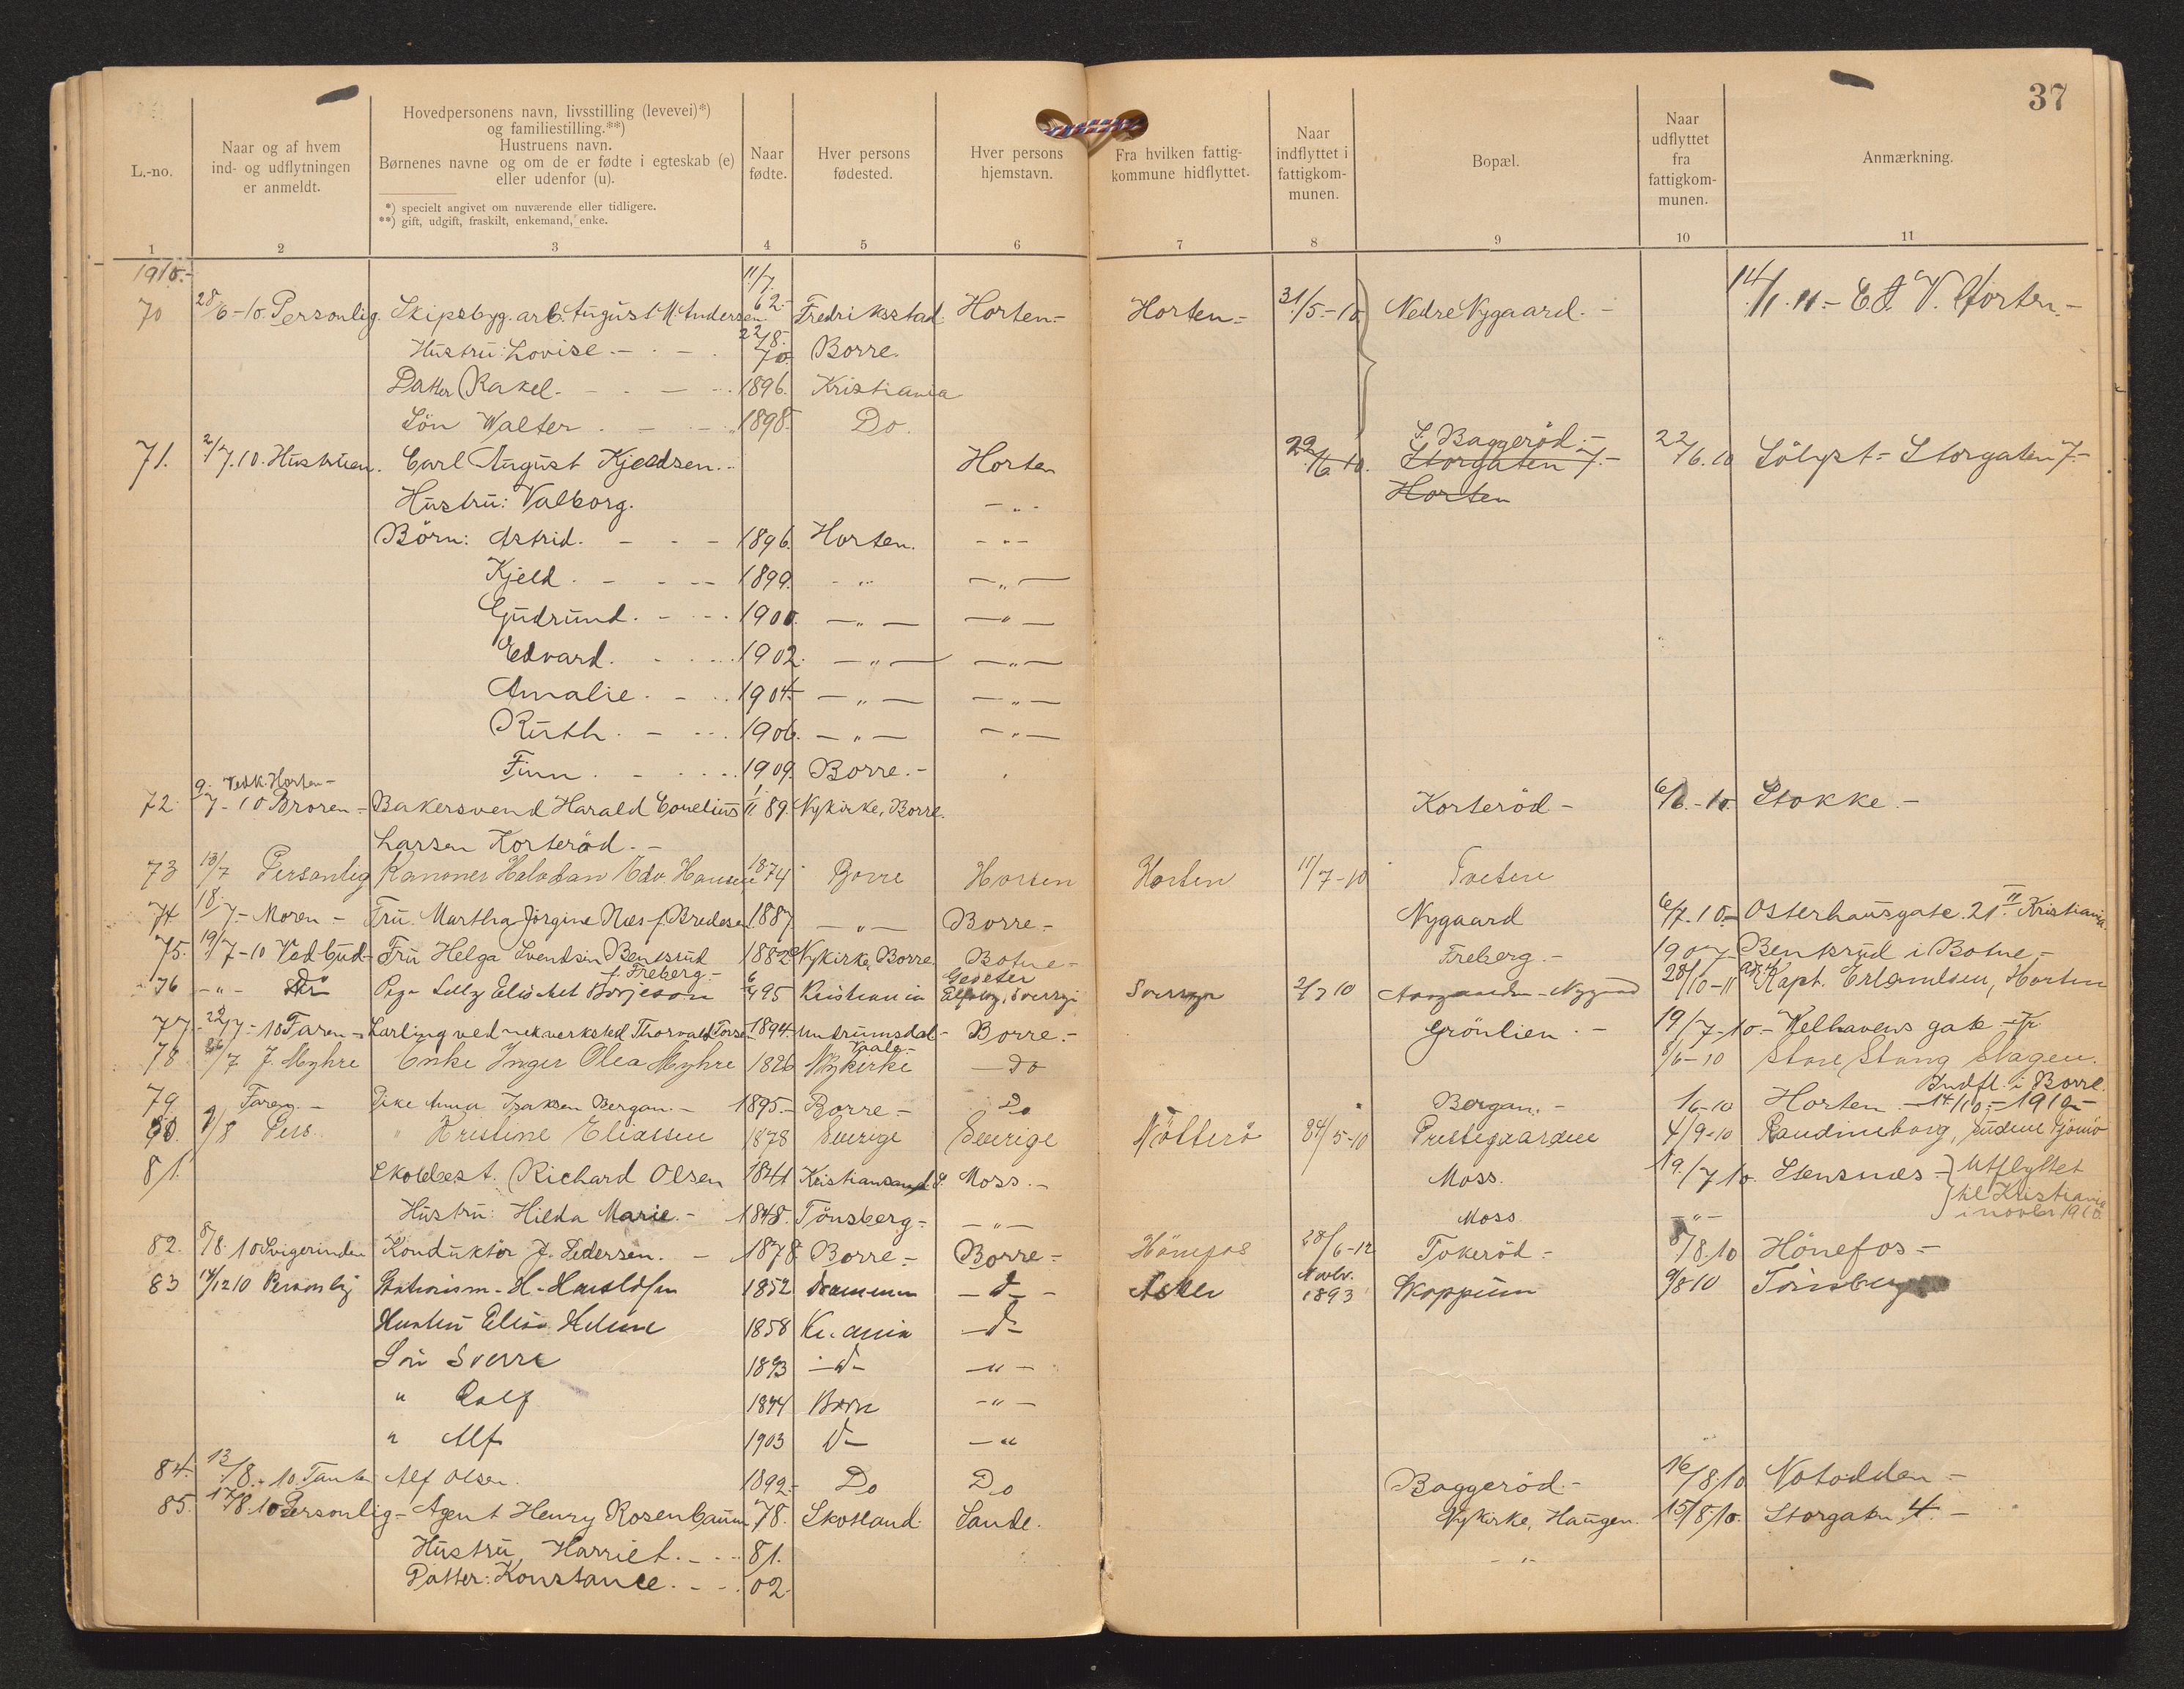 37
L.-no.
Naar og af hvem
ind- og udflytningen
er anmeldt.
Hovedpersonens navn, livsstilling (levevei)*)
og familiestilling.**)
Hustruens navn.
Børnenes navne og om de er fødte i egteskab (e)
eller udenfor (u).
*) specielt angivet om nuværende eller tidligere.
**) gift, udgift, fraskilt, enkemand, enke.
Naar
fødte.
Hver persons
fødested.
Hver persons
hjemstavn.
Fra hvilken fattig-
kommune hidflyttet.
Naar
indflyttet i
fattigkom-
munen.
Bopæl.
Naar
udflyttet
fra
fattigkom-
munen.
Anmærkning.
1 2 3 4 5 6 7 8 9 10 11
1910.-
70 28/6-10. Personlig. Skipsbyg. arb. August M. Andersen 11/7. 62.- Fredriksstad Horten.- Horten.- 31/5.-10 Nedre Nygaard.- 14/1.11.- E.f. V. Horten.-
Hustru: Lovise.- 22/8. 70. Borre.
Datter Rakel.- 1896. Kristiania
Sön Walter. 1898. Do.
71. 2/7.10. Hustruen. Carl August Kjeldsen.- Horten 22/6 10. S. Baggeröd.- Storgaten 7.- 22/6.10 Sölyst = Storgaten 7.-
Hustru: Valborg. -"- Horten
Börn: Astrid. 1896. Horten. -"-
Kjeld. 1899. -"- -"-
Gudrund. 1900. -"- -"-
Edvard. 1902. -"- -"-
Amalie. 1904. -"- -"-
Ruth. 1906. -"- -"-
Finn. 1909. Borre.-
72. 9/7-10 Broren - Bakersvend Harald Cornelius 1/11 89. Nykirke, Borre. Korteröd - 6/6.-10. Stokke.-
Larsen Korteröd.-
73 13/7 Personlig Kanoner Halvdan Edv. Hansen 1874 Borre Horten Horten 11/7-10 Tveten
74 18/7- Moren - Fru Martha Jörgine Næs f. Bredesen 1887. -"- Borre.- Nygaard 6/7.10.- Osterhausgate. 21 II Kristiania
75. 19/7-10 Ved bud- Fru Helga Svendsen Bentsrud 1882. Nykirke, Borre. Botne- Freberg.- 1907- Bentsrud i Botne.-
f. Freberg.-
76 -"- Pige Elisabet 95 Kristiania Sverige 2/7 10 28/10-11 Kapt. Erlandsen, Horten
77.- 22/7-10 Faren - Lærling ved mek verksted Thorvald 1894. Undrumsdal- Borre.- Grönlien.- 19/7-10.- Welhavens gate
78 /7 J. Myhre Enke Inger Olea Myhre 1826 Nykirke -Do 8/6-10 Store Stang Slagen.
79 Faren.- Pike Anna Isaksen Bergan.- 1895.- Borre.- Do Bergan.- 1/6-10 Horten.- Indfl. i Borre. 14/10.-1910-
80. 9/8 Pers. " Kristine Eliassen 1878 Sverige Sverige Nötterö 24/5-10 Prestegaarden 4/9-10
81. Richard Olsen 1841 Kristiansand S. Moss.- Moss. 19./7 10. Stensnes - Utflyttet til Kristiania i novbr 1910.
Hustru: Hilda Marie.- 1848. Tönsberg- -"- Moss -"-
82. 8/8.10 Svigerinden Konduktör J. Pedersen.- 1878. Borre.- Borre.- Hönefos 28/6-12 Tokeröd.- 8/8.10 Hönefos-
83 14/12 10 Personlig Stationsm. H. 1852 Drammen -d- Asker Novbr. 1893 Skoppum 9/8 10 Tönsberg
Hustru Elise 1858 Kr.ania -d-
Sön Sverre 1893 -d- -"-
" Rolf 1894 Borre -"-
" Alf 1903 d- -"-
84. 13/8.-10. Tanten Alf Olsen. 1892- Do Do Baggeröd.- 16/8.10 Notodden-
85. 17/8 10 Personlig- Agent Henry Rosenbaum 78. Skotland. Sande. Nykirke, Haugen. 15/8.10. Storgaten 4.-
Hustru, Harriet.- 81. -"-
Datter: Konstance.- 02.